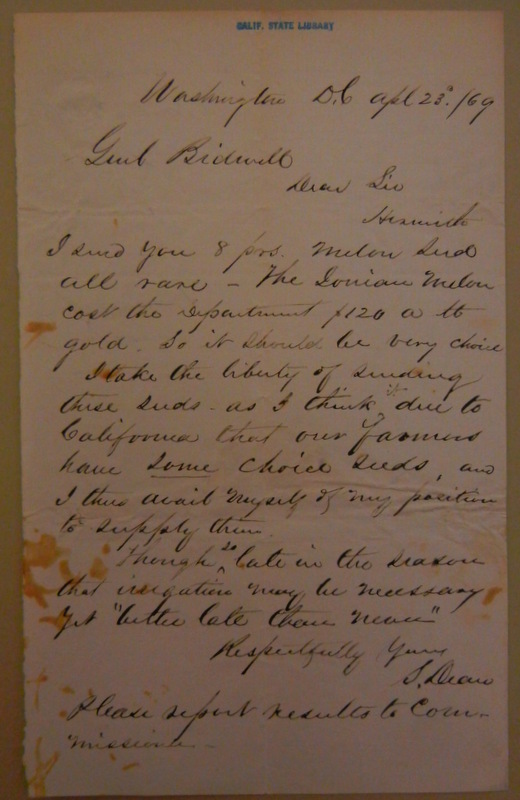 CALIF. STATE LIBRARY
Washington D.C Apl 23d. /69
Genl Bidwell
Dear Sir
Herewith
I send you 8 prs. Melon Seed
all rare - The Ionian Melon
cost the Department $120 a lb
gold. So it should be very choice
I take the liberty of sending
these seeds - as I think it due to
California that our farmers
have some choice seeds, and
I thus avail myself of my position
to supply them.
Though so late in the season
that irrigation may be necessary
yet "better late than never"
Respectfully Yours
S. Dean
Please report results to Com-
missioner -